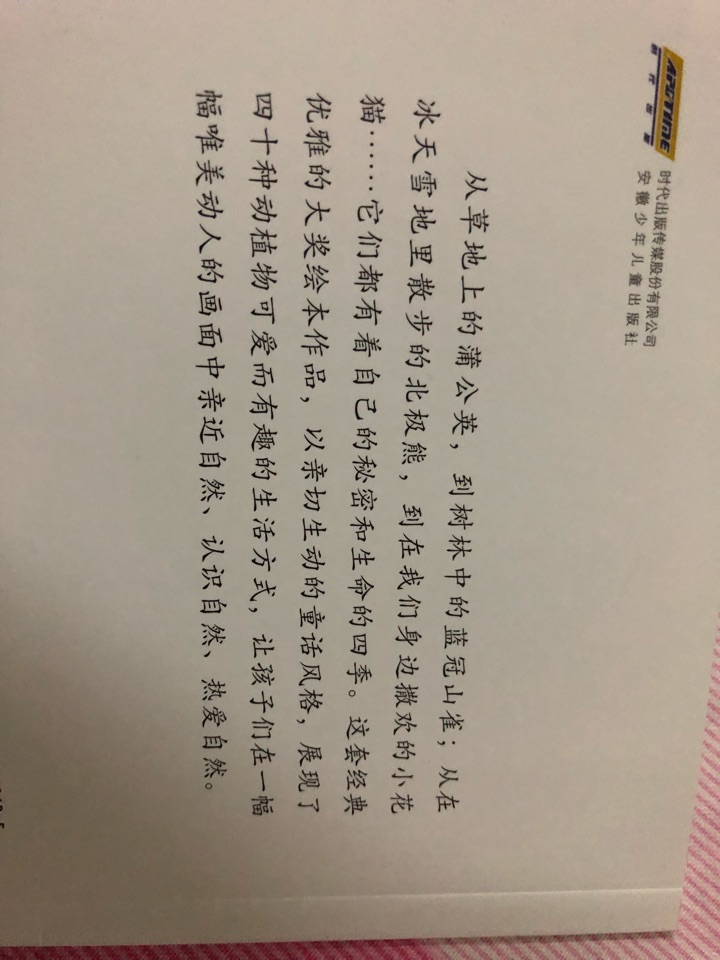 APGTIME
时代出版
时代出版传媒股份有限公司
安徽少年儿童出版社
从草地上的蒲公英，到树林中的蓝冠山雀；从在
冰天雪地里散步的北极熊，到在我们身边撒欢的小花
猫……它们都有着自己的秘密和生命的四季。这套经典
优雅的大奖绘本作品，以亲切生动的童话风格，展现了
四十种动植物可爱而有趣的生活方式，让孩子们在一幅
幅唯美动人的画面中亲近自然、认识自然、热爱自然。